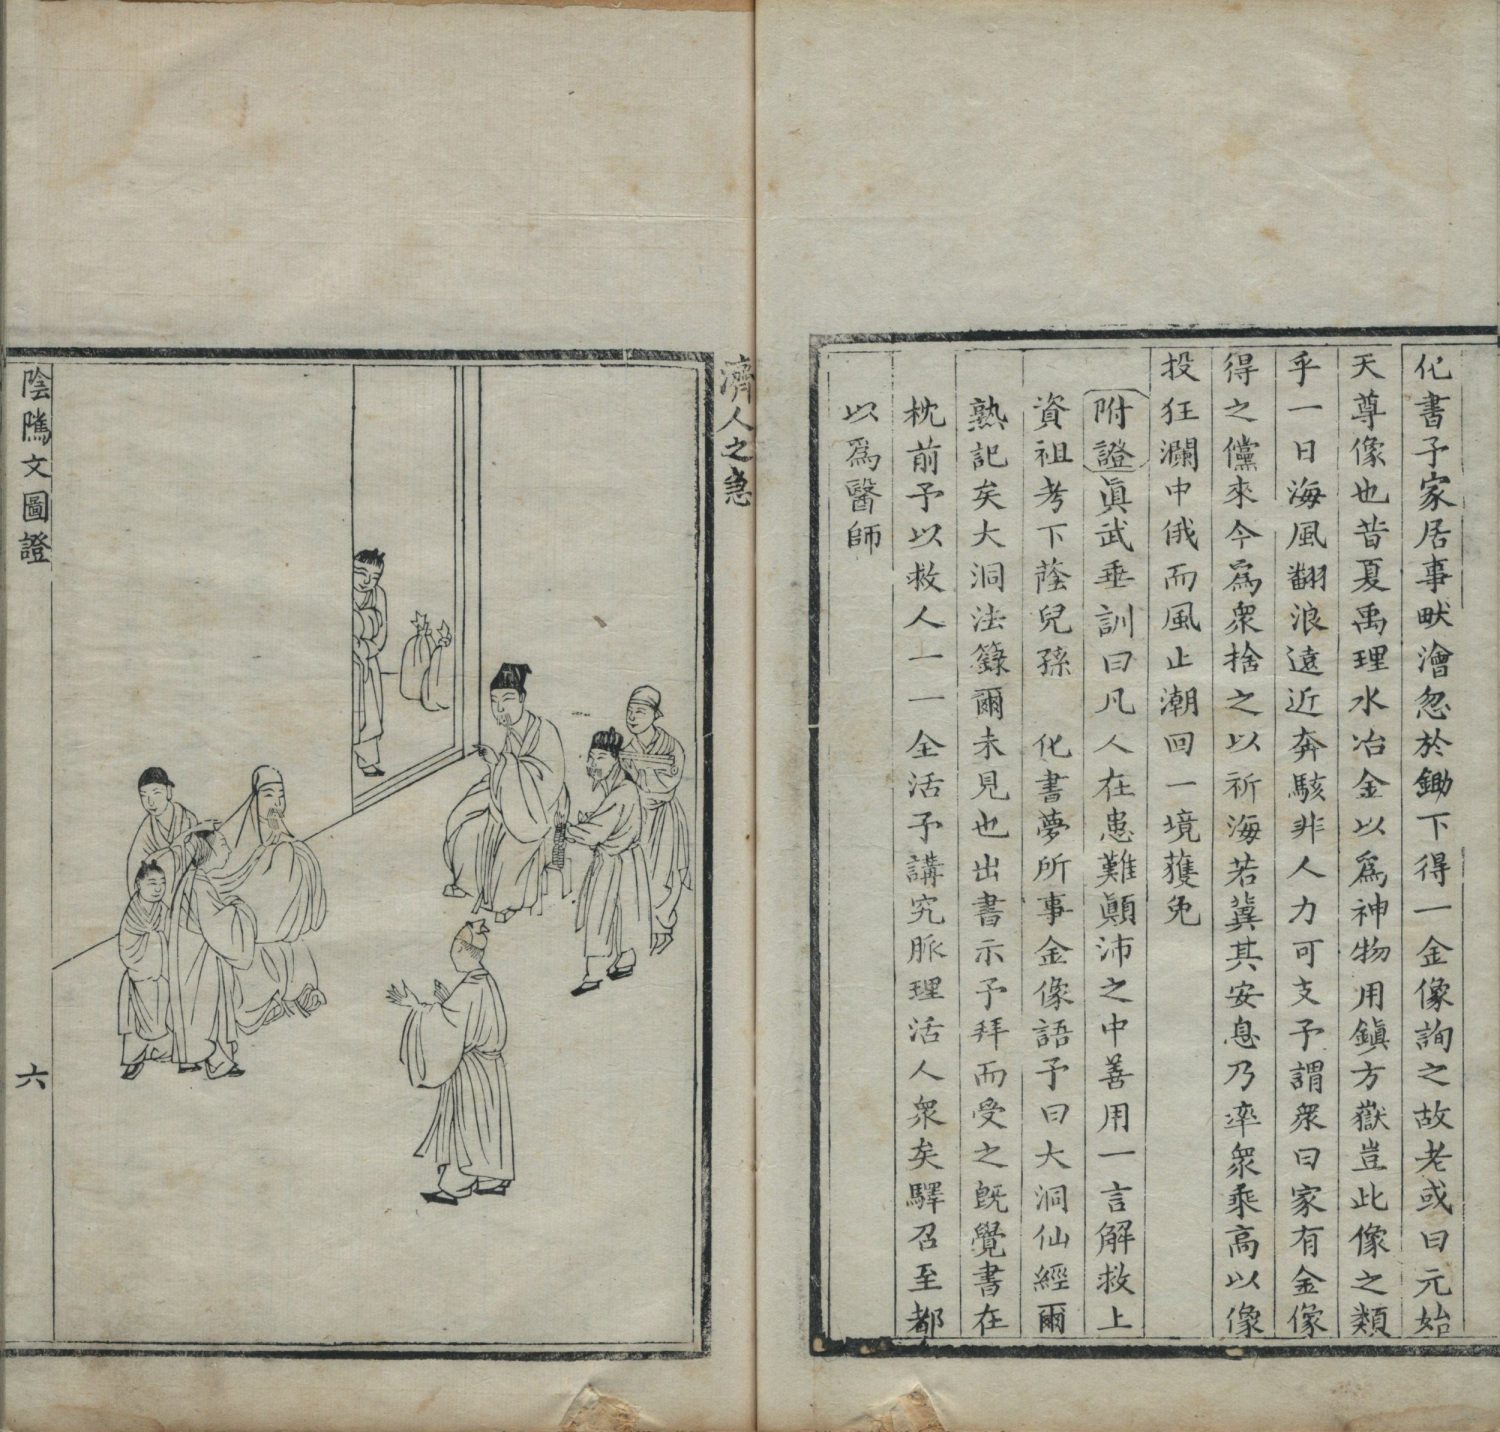 化書予家居事畎澮忽於鋤下得一金像詢之故老或曰元始
天尊像也昔夏禹理水冶金以爲神物用鎭方嶽豈此像之類
乎一日海風翻浪遠近奔駭非人力可支予謂衆曰家有金像
得之儻來今爲衆捨之以祈海若冀其安息乃率衆乘高以像
投狂瀾中俄而風止潮回一境獲免
附證眞武垂訓曰凡人在患難顚沛之中善用一言解救上
資祖考下蔭兒孫　化書夢所事金像語予曰大洞仙經爾
熟記矣大洞法籙爾未見也出書示予拜而受之旣覺書在
枕前予以救人一一全活予講究脈理活人衆矣驛召至都
以爲醫師
濟人之急
陰隲文圖證
六